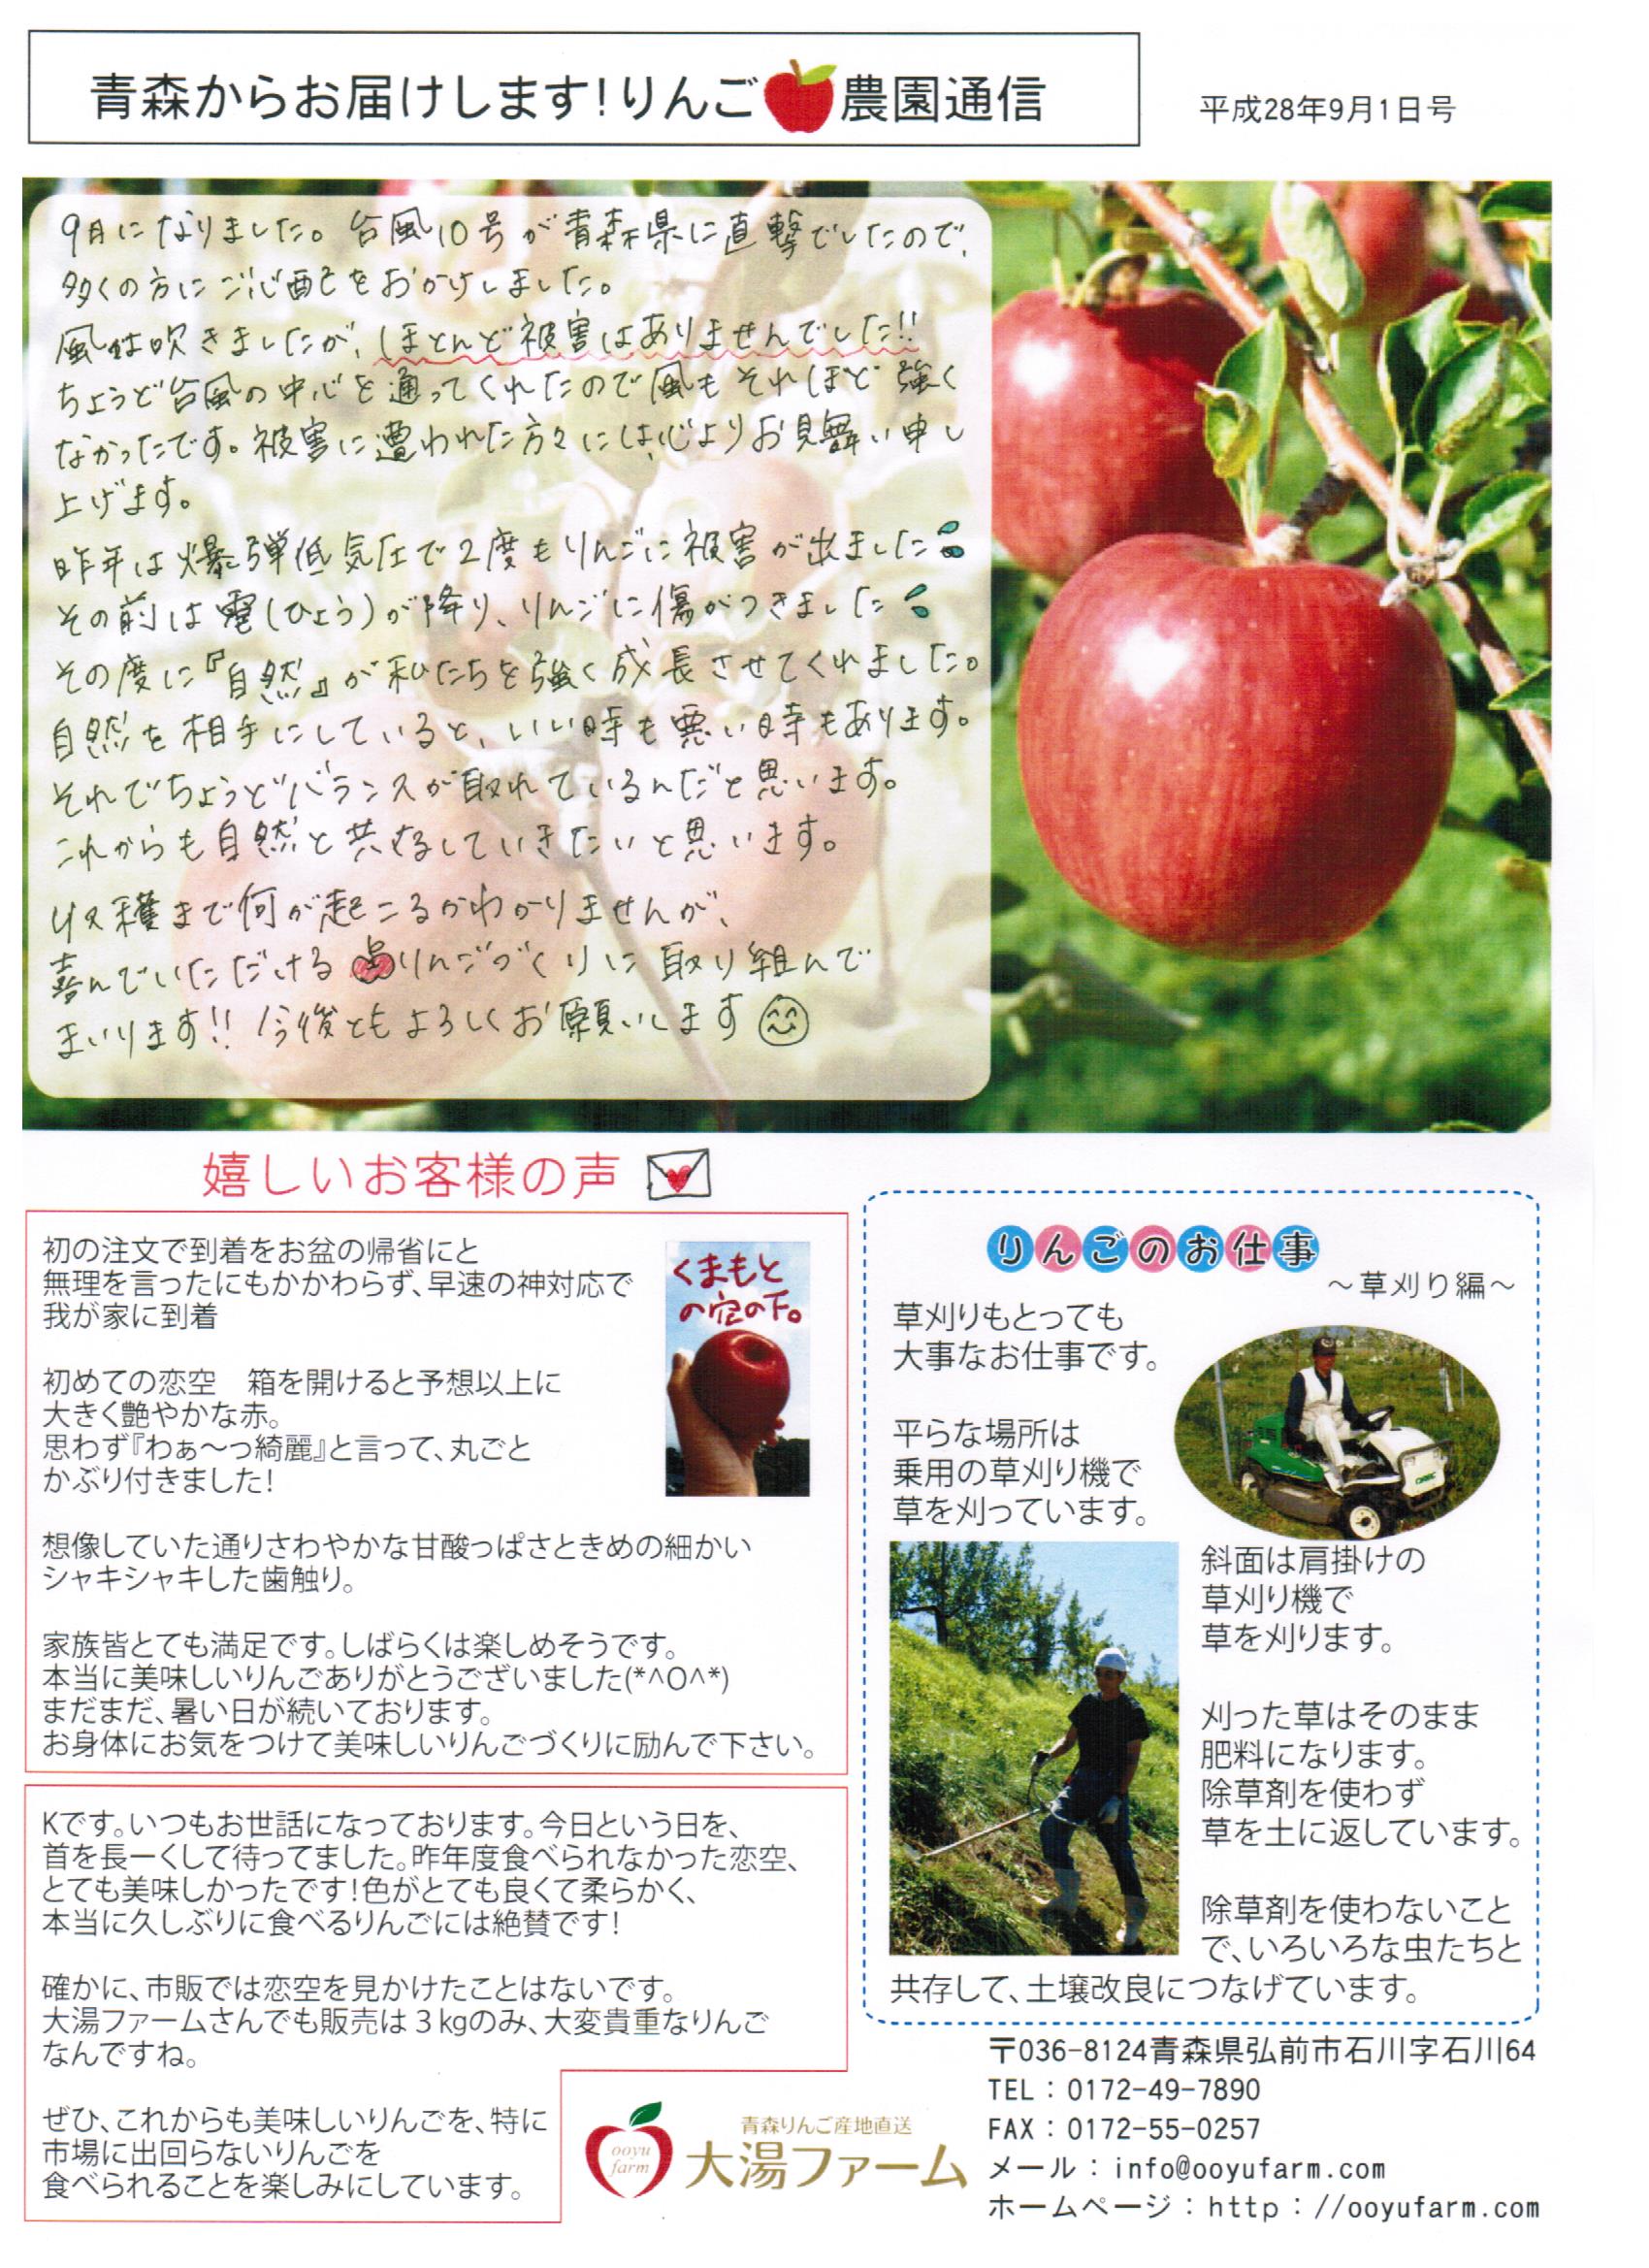 青森からお届けします!りんご農園通信
平成28年9月1日号
9月になりました。台風10号が青森県に直撃でしたので、
多くの方にご心配をおかけしました。
風は吹きましたが、ほとんど被害はありませんでした!!
ちょうど台風の中心を通ってくれたので風もそれほど強く
なかったです。被害に遭われた方々には心よりお見舞い申し
上げます。
昨年は爆弾低気圧で2度もりんごに被害が出ました
その前は雹(ひょう)が降り、りんごに傷がつきました
その度に『自然』が私たちを強く成長させてくれました。
自然を相手にしていると、いい時も悪い時もあります。
それでちょうどバランスが取れているんだと思います。
これからも自然と共存していきたいと思います。
収穫まで何が起こるかわかりませんが、
喜んでいただけるりんごづくりに取り組んで
まいります!!今後ともよろしくお願いします
嬉しいお客様の声
初の注文で到着をお盆の帰省にと
無理を言ったにもかかわらず、早速の神対応で
我が家に到着
初めての恋空 箱を開けると予想以上に
大きく艶やかな赤。
思わず『わぁ～っ綺麗』と言って、丸ごと
かぶり付きました!
想像していた通りさわやかな甘酸っぱさときめの細かい
シャキシャキした歯触り。
家族皆とても満足です。しばらくは楽しめそうです。
本当に美味しいりんごありがとうございました(*^O^*)
まだまだ、暑い日が続いております。
お身体にお気をつけて美味しいりんごづくりに励んで下さい。
くまもと
の空の下。
Kです。いつもお世話になっております。今日という日を、
首を長ーくして待ってました。昨年度食べられなかった恋空、
とても美味しかったです!色がとても良くて柔らかく、
本当に久しぶりに食べるりんごには絶賛です!
確かに、市販では恋空を見かけたことはないです。
大湯ファームさんでも販売は３kgのみ、大変貴重なりんご
なんですね。
ぜひ、これからも美味しいりんごを、特に
市場に出回らないりんごを
食べられることを楽しみにしています。
りんごのお仕事
～草刈り編～
草刈りもとっても
大事なお仕事です。
平らな場所は
乗用の草刈り機で
草を刈っています。
斜面は肩掛けの
草刈り機で
草を刈ります。
刈った草はそのまま
肥料になります。
除草剤を使わず
草を土に返しています。
除草剤を使わないこと
で、いろいろな虫たちと
共存して、土壌改良につなげています。
ooyu
farm
青森りんご産地直送
大湯ファーム
〒036-8124青森県弘前市石川字石川64
TEL：0172-49-7890
FAX：0172-55-0257
メール：info@ooyufarm.com
ホームページ：http：//ooyufarm.com